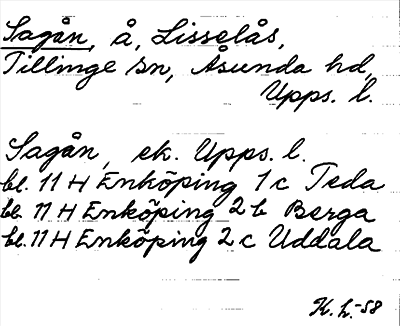 Sagån, å, Lisselås,
Tillinge sn, Åsunda hd,
Upps. l.
Sagån, ek. Upps. l.
bl. 11 H Enköping 1 c Teda
bl. 11 H Enköping 2 b Berga
bl. 11 H Enköping 2 c Uddala
H. h. -58